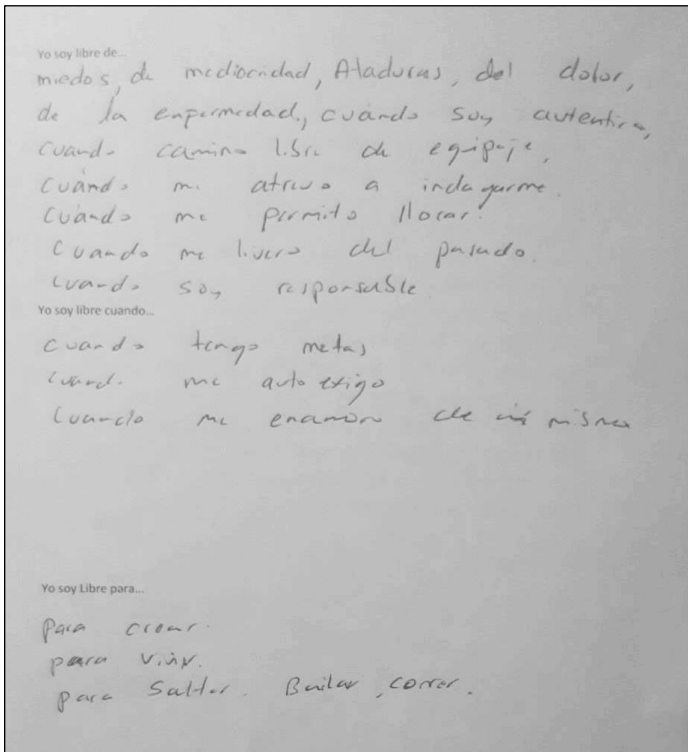 Yo soy libre de...
miedos, de mediocridad, Ataduras, del dolor,
de la enfermedad, cuando soy autentica,
cuando camino libre de equipaje,
cuando me atrevo a indagarme.
cuando me permito llorar.
cuando me livero del pasado.
cuando soy responsable.
Yo soy libre cuando...
cuando tengo metas
cuando me auto exigo
cuando me enamoro de mi misma
Yo soy Libre para...
para crear.
para vivir.
para Saltar. Bailar, correr.